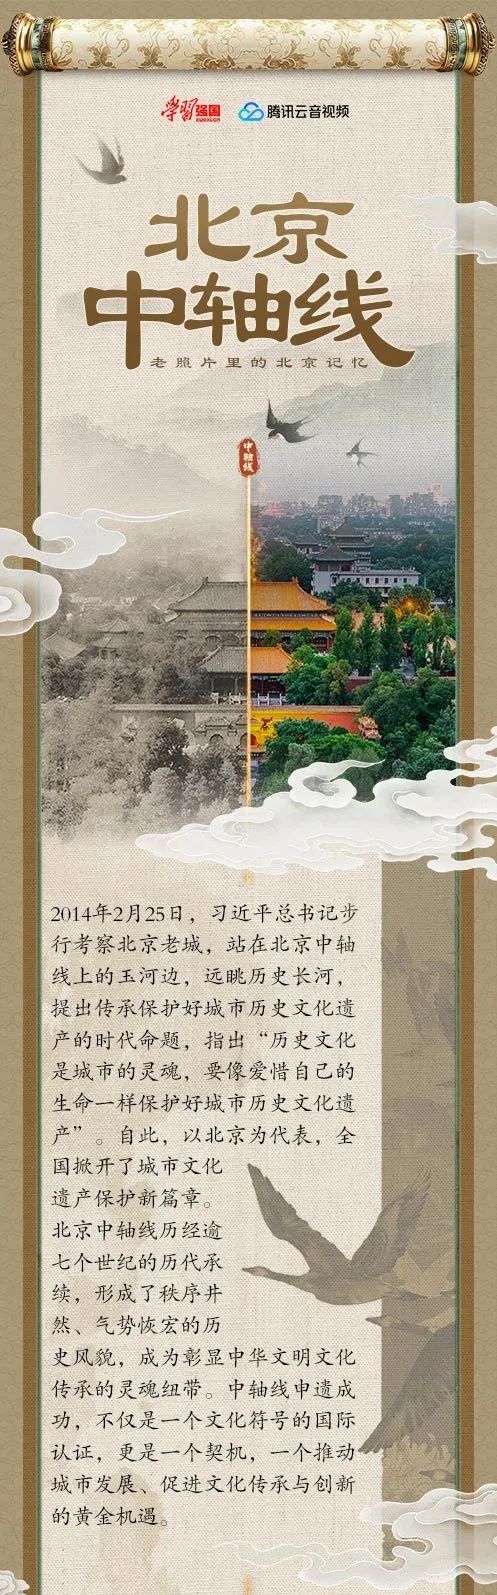 学习强国
xuexi.cn
腾讯云音视频
北京
中轴线
老照片里的北京记忆
中轴线
2014年2月25日，习近平总书记步
行考察北京老城，站在北京中轴
线上的玉河边，远眺历史长河，
提出传承保护好城市历史文化遗
产的时代命题，指出“历史文化
是城市的灵魂，要像爱惜自己的
生命一样保护好城市历史文化遗
产”。自此，以北京为代表，全
国掀开了城市文化
遗产保护新篇章。
北京中轴线历经逾
七个世纪的历代承
续，形成了秩序井
然、气势恢宏的历
史风貌，成为彰显中华文明文化
传承的灵魂纽带。中轴线申遗成
功，不仅是一个文化符号的国际
认证，更是一个契机，一个推动
城市发展、促进文化传承与创新
的黄金机遇。